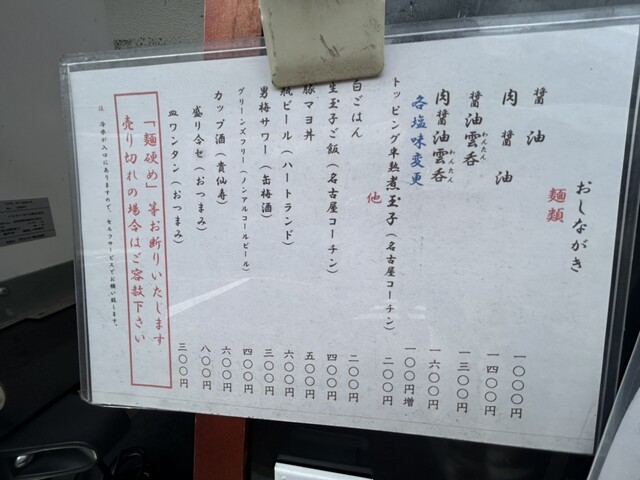 おしながき
麺類
醤油 一〇〇〇円
肉醤油 一四〇〇円
醤油雲呑 わんたん 一三〇〇円
肉醤油雲呑 わんたん 一六〇〇円
各塩味変更 一〇〇円増
トッピング半熟煮玉子(名古屋コーチン) 二〇〇円
他
白ごはん 二〇〇円
生玉子ご飯(名古屋コーチン) 四〇〇円
豚マヨ丼 五〇〇円
瓶ビール(ハートランド) 六〇〇円
男梅サワー(缶梅酒) 三〇〇円
グリーンズフリー(ノンアルコールビール) 四〇〇円
カップ酒(貴仙寿) 六〇〇円
盛り合せ(おつまみ) 八〇〇円
皿ワンタン(おつまみ) 三〇〇円
「麺硬め」等お断りいたします
売り切れの場合はご容赦下さい
注 冷水が入口にありますので、セルフサービスでお願い致します。